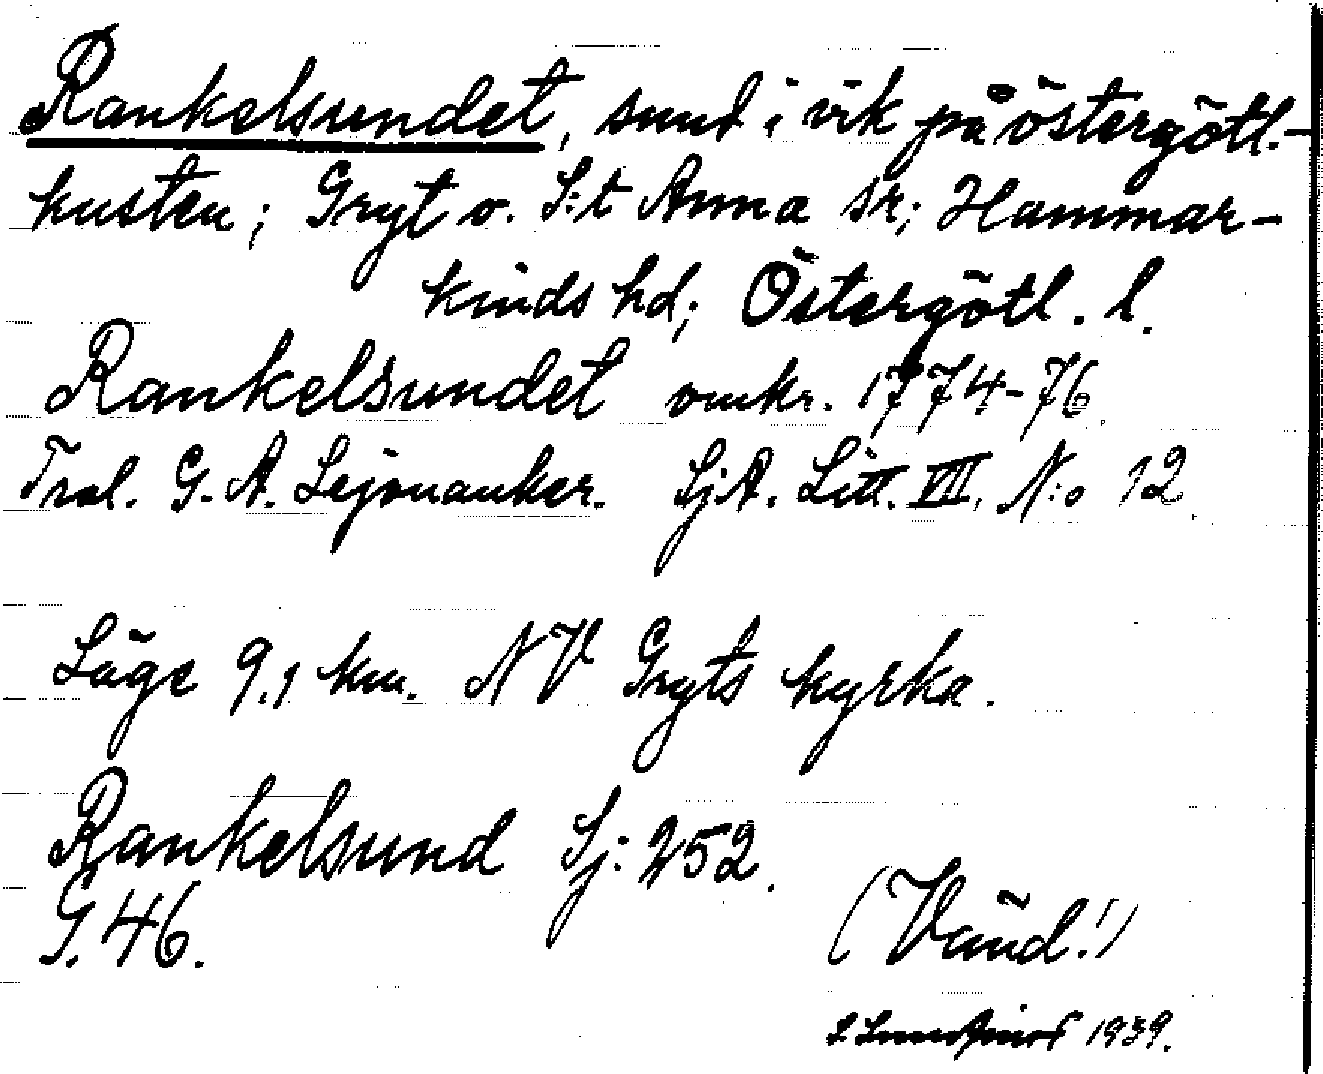 Rankelsundet, sund i vik på östergötl.-
kusten; Gryt o. S:t Anna sr; Hammar-
kinds hd; Östergötl. l.
Rankelsundet omkr. 1774-76
Tral. G. A. Lejonanker. SjA. Litt. VII, N:o 12
Läge 9,1 km. NV Gryts kyrka.
Rankelsund Sj: 252.
G. 46.
(Vänd!)
1939.